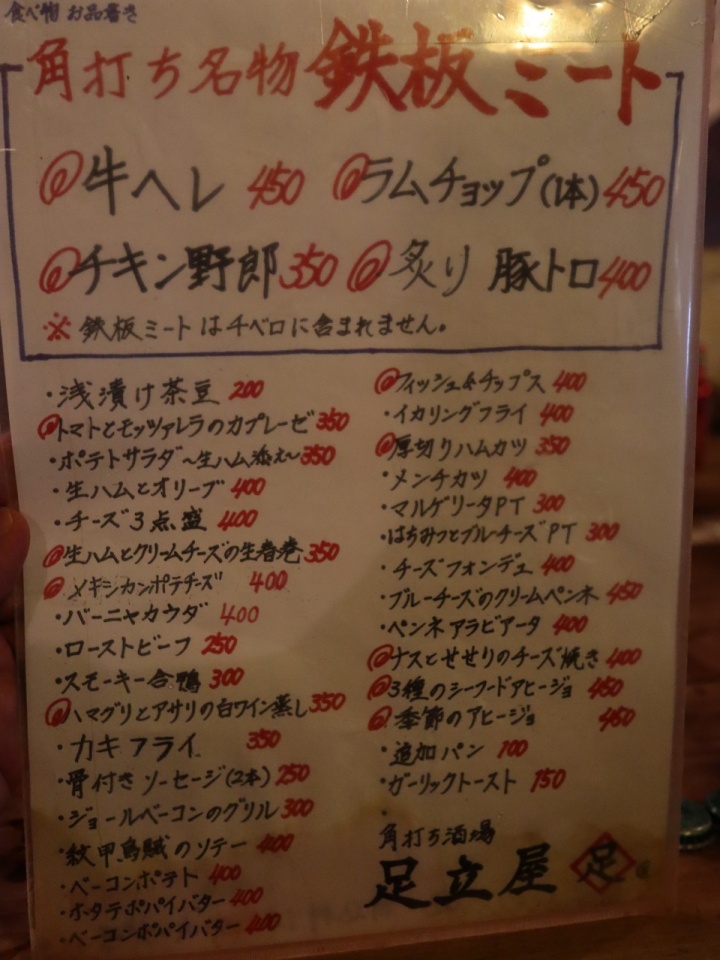 食べ物 お品書き
角打ち名物 鉄板ミート
牛ヘレ 450
ラムチョップ(1本) 450
チキン野郎 350
炙り 豚トロ 400
※ 鉄板ミートはチベロに含まれません。
・浅漬け茶豆 200
トマトとモッツァレラのカプレーゼ 350
・ポテトサラダ〜生ハム添え〜 350
・生ハムとオリーブ 400
・チーズ3点盛 400
生ハムとクリームチーズの生春巻 350
メキシカンポテチーズ 400
・バーニャカウダ 400
・ローストビーフ 250
・スモーキー合鴨 300
ハマグリとアサリの白ワイン蒸し 350
・カキフライ 350
・骨付きソーセージ(2本) 250
・ジョールベーコンのグリル 300
・紋甲烏賊のソテー 400
・ベーコンポテト 400
・ホタテポパイバター 400
・ベーコンポパイバター 400
フィッシュ&チップス 400
・イカリングフライ 400
厚切りハムカツ 350
・メンチカツ 400
・マルゲリータPT 300
・はちみつとブルーチーズPT 300
・チーズフォンデュ 400
・ブルーチーズのクリームペンネ 450
・ペンネアラビアータ 400
ナスとせせりのチーズ焼き 400
3種のシーフードアヒージョ 450
季節のアヒージョ 450
・追加パン 100
・ガーリックトースト 150
角打ち酒場
足立屋 足